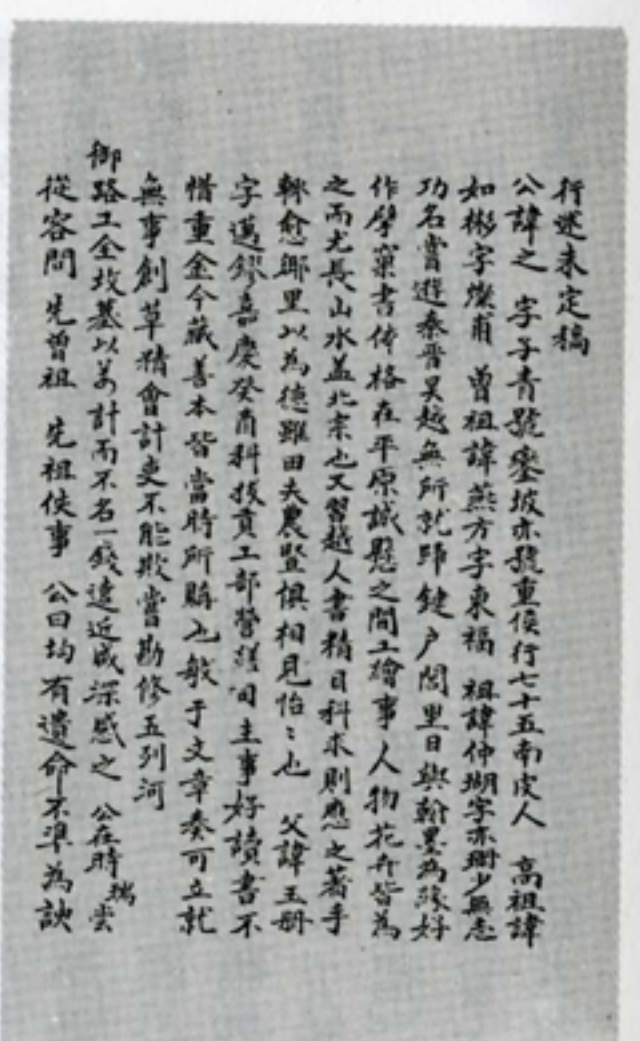 行述未定稿
公諱之 字子青號鑾坡亦號重侯行七十五南皮人 高祖諱
如彬字燦甫 曾祖諱燕方字東福 祖諱仲瑚字亦珊少無志
功名嘗遊秦晉吳越無所就歸鍵户閭里日與翰墨為緣好
作擘窠書体格在平原誠懸之間工繪事人物花卉皆為
之而尤長山水蓋北宗也又習越人書精目科求則應之著手
輒愈鄉里以為德雖田夫農豎俱相見怡〻也 父諱玉册
字邁鏐嘉慶癸酉科拔貢工部營繕司主事好讀書不
惜重金今藏善本皆當時所購也敏于文章奏可立就
無事創草精會計吏不能欺嘗勘修五列河
御路工全攻基以萬計而不名一錢遠近咸深感之 公在時 嘗
從容問 先曾祖 先祖佚事 公曰均有遺命不準為諛